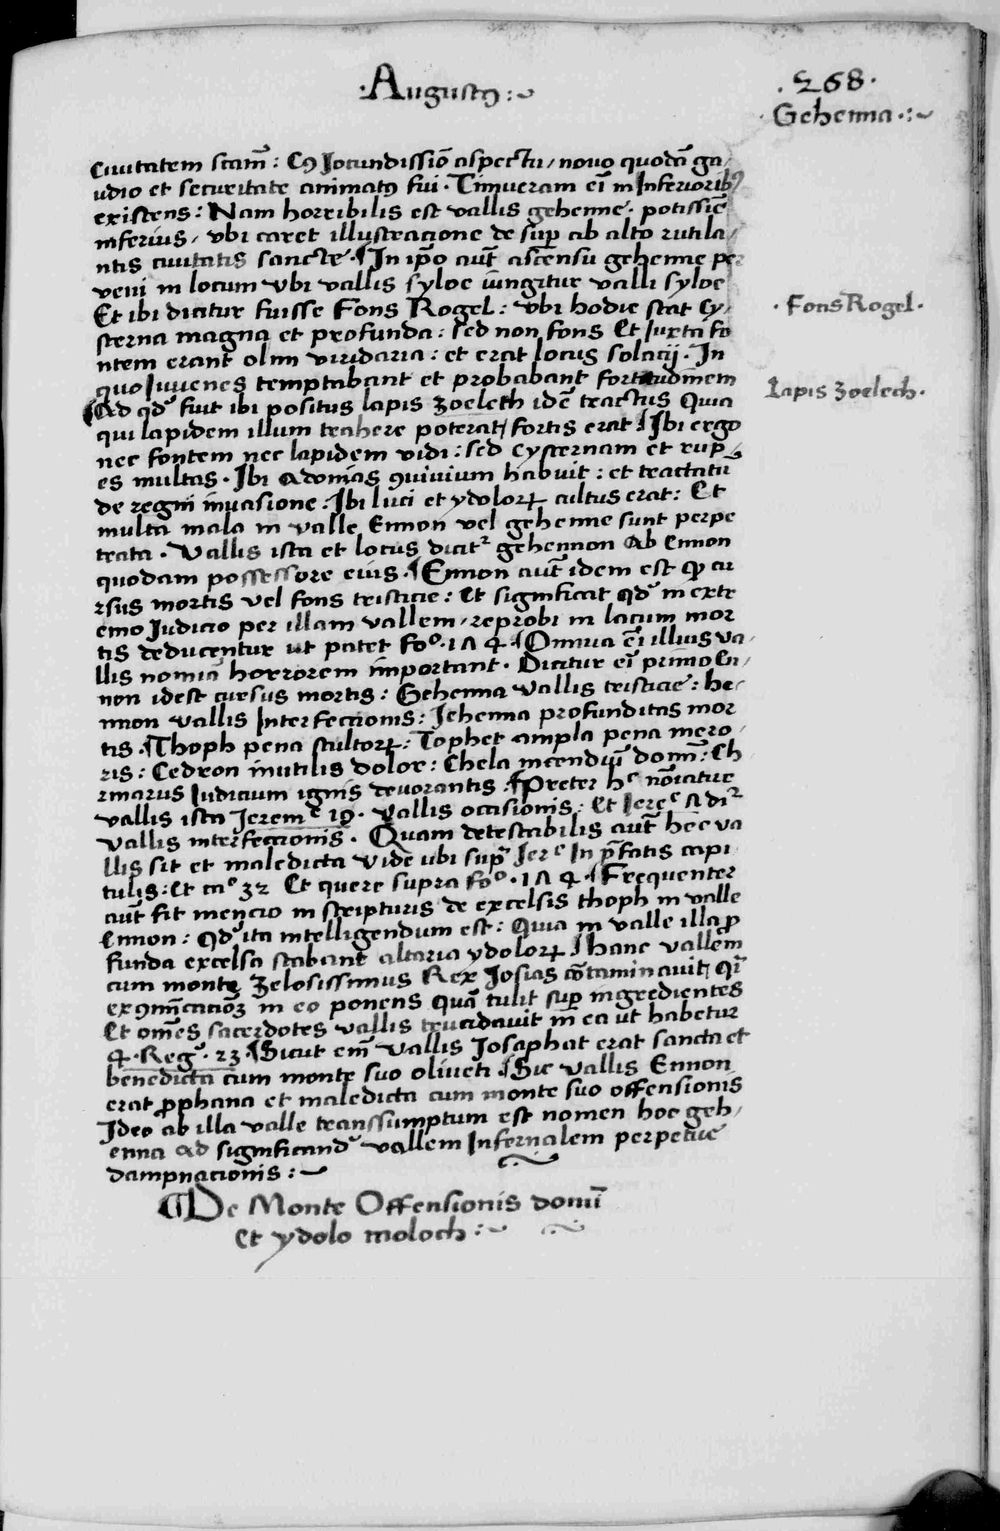 ·Augustꝯ:~
·268·
Gehenna·:~
Ciuitatem scam̄: Cꝯ Jocundissiō aspectu/ nouo quodā ga/
udio et securitate animatꝯ fui· Timueram eī in Inferioribꝯ
existens: Nam horribilis est vallis gehenne· potissiē
inferius/ vbi caret illustracione de suꝑ ab alto rutila/
ntis ciuitatis sancte·¶In ip̄o aūt ascensu gehenne per
veni in locum vbi vallis syloe iūngitur valli syloe
Et ibi dicitur fuisse Fons Rogel: vbi hodie stat Cy/
·Fons Rogel·
sterna magna et profunda: sed non fons Et Juxta fo
ntem erant olim viridaria: et erat locus solacij· In
quo Juuenes temptabant et probabant fortitudinem
Lapis zoelech·
¶Ad qd' fuit ibi positus lapis zoeleth idē tractus Quia
qui lapidem illum trahere poterat/ fortis erat ¶Ibi ergo
nec fontem nec lapidem vidi: sed Cysternam et rup
es multas· Ibi Adonias ꝯuiuium habuit: et tractatū
de regni inuasione: Ibi luci et ydoloꝝ cultus erat: Et
multa mala in valle Ennon vel gehenne sunt perpe
trata· Vallis ista et locus dicit᷑ gehennon Ab Ennon
quodam possessore eius·¶Ennon aūt idem est ꝙ cu
rsus mortis vel fons tristicie: Et significat qd' in extr
emo Judicio per illam vallem/ reprobi in lacum mor
tis deducentur ut patet foº·174·¶Omnia eī illius va/
llis nomiā horrorem important· Dicitur eī primo En/
non idest cursus mortis: Gehenna vallis tristicie: he/
nnon vallis Interfectionis: Jehenna profunditas mor
tis·¶Thoph pena stultoꝝ: Tophet ampla pena mero/
ris: Cedron inutilis dolor: Chela incendiū dom̄: Ch
rmarus Judicium ignis deuorantis:¶Preter hᶜ nōiatur
vallis ista Jeremᵉ 19· Vallis occisionis: Et Jereᵉ 7 dr̄
vallis interfectionis· Quam detestabilis aūt hec va
llis sit et maledicta vide ubi sup̄ Jerᵉ In p̄fatis capi
tulis: Et caº 32 Et quere supra foº·174·¶Frequenter
aūt fit mencio in scripturis de excelsis thoph in valle
Ennon: Qd' ita intelligendum est: Quia in valle illa ꝓ
funda excelsa stabant altaria ydoloꝝ ¶hanc vallem
cum monte zelosissimus Rex Josias cōtaminauit/ qr̄
in eo ponens quā tulit suꝑ ingredientes
Et om̄es sacerdotes vallis trucidauit in ea ut habetur
4·Reg'·23 ¶Sicut em̄ vallis Josaphat erat sancta et
benedicta cum monte suo oliueti ¶Sic vallis Ennon
erat ꝓphana et maledicta cum monte suo offensionis
Ideo ab illa valle transsumptum est nomen hoc geh/
enna ad significand' vallem Infernalem perpetue
dampnacionis:~
¶De Monte Offensionis domī
Et ydolo moloch:~